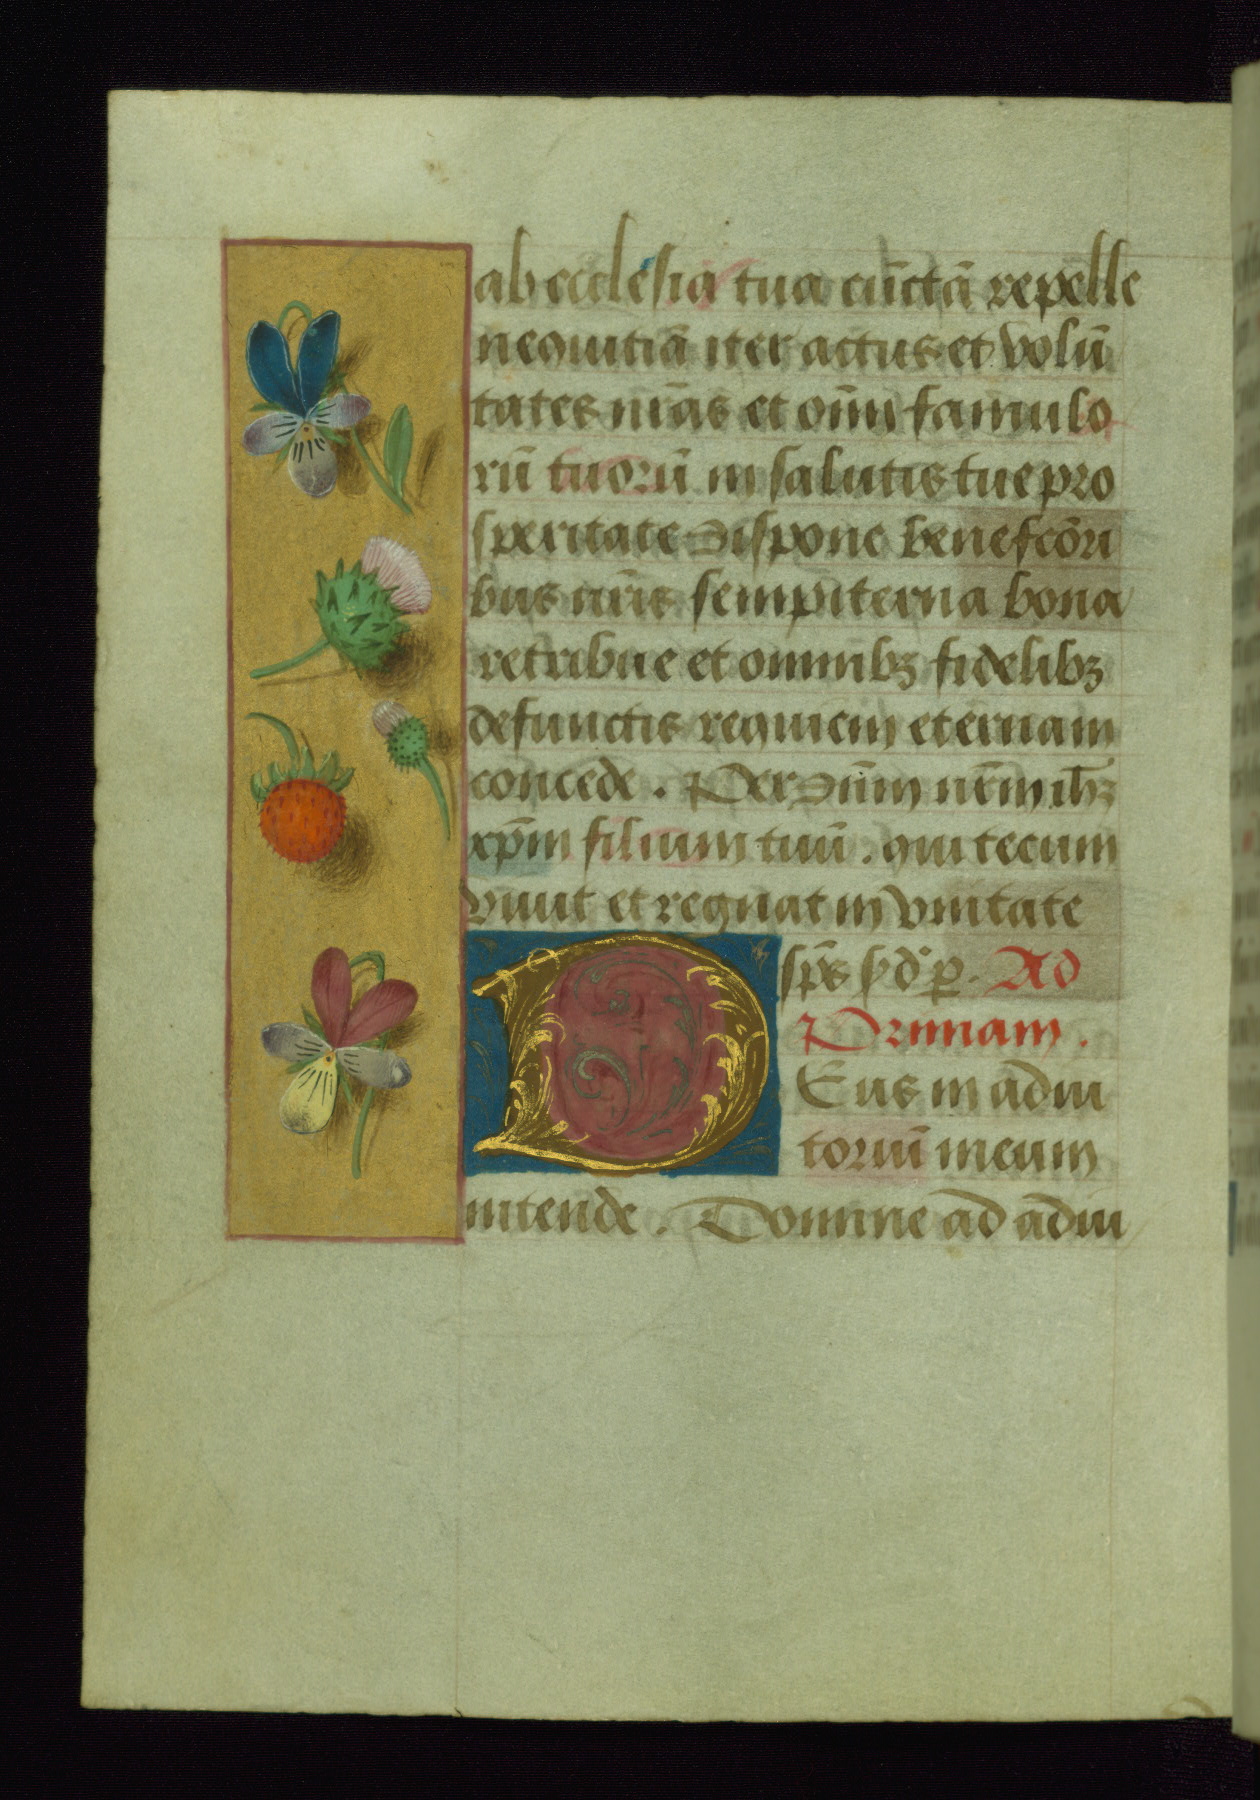 ab ecclesia tua cūctā repelle
nequitiā iter actus et volū
tates nr̄as et oīm famulo
rū tuorū in salutis tue pro
speritate dispone benefcōri
bus nr̄is sempiterna bona
retribue et omnibꝫ fidelibꝫ
defunctis requiem eternam
concede . Per dn̄m nr̄m ih̄ꝫ
xp̄m filium tuū . qui tecum
viuit et regnat in vnitate
sp̄s Ad
Primam .
DEus in adiu
toriū meum
intende . Domine ad adiu